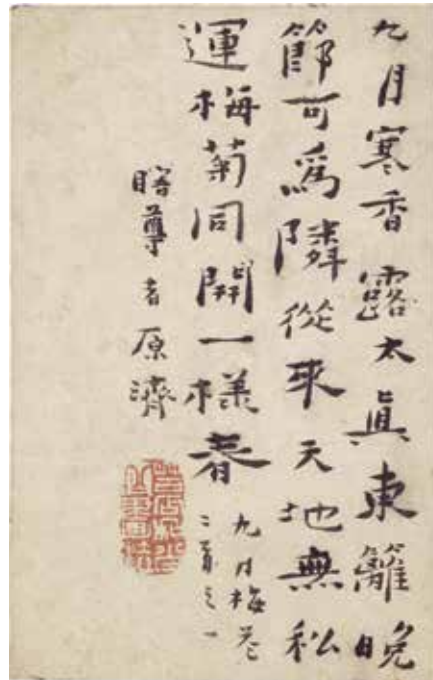 九月寒香露太真東籬晚
節可為隣從來天地無私
運梅菊同開一樣春
九月梅卷
二首之一
瞎尊者原濟